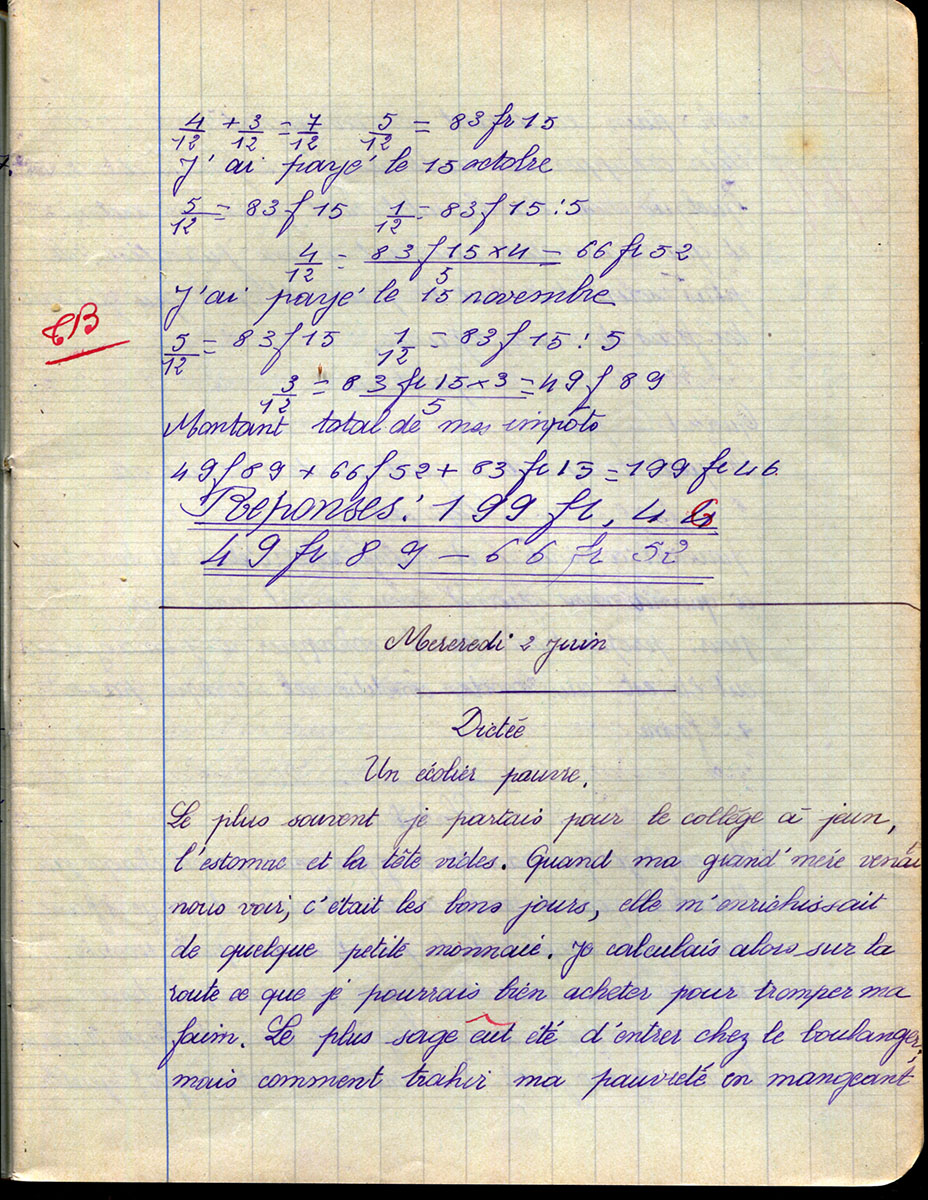 4/12 + 3/12 = 7/12 5/12 = 83 fr 15
J'ai payé le 15 octobre
5/12 = 83 f 15 1/12 = 83 f 15 : 5
4/12 = 83 f 15 × 4 / 5 = 66 fr 52
J'ai payé le 15 novembre
TB
5/12 = 83 f 15 1/12 = 83 f 15 : 5
3/12 = 83 fr 15 × 3 / 5 = 49 f 89
Montant total de mes impôts
49 f 89 + 66 f 52 + 83 fr 15 = 199 fr 46
Reponses : 199 fr, 46
49 fr 89 — 66 fr 52
Mercredi 2 Juin
Dictée
Un écolier pauvre.
Le plus souvent je partais pour le collège à jeun,
l'estomac et la tête vides. Quand ma grand'mère venai
nous voir, c'était les bons jours, elle m'enrichissait
de quelque petite monnaie. Je calculais alors sur la
route ce que je pourrais bien acheter pour tromper ma
faim. Le plus sage eût été d'entrer chez le boulanger,
mais comment trahir ma pauvreté en mangeant